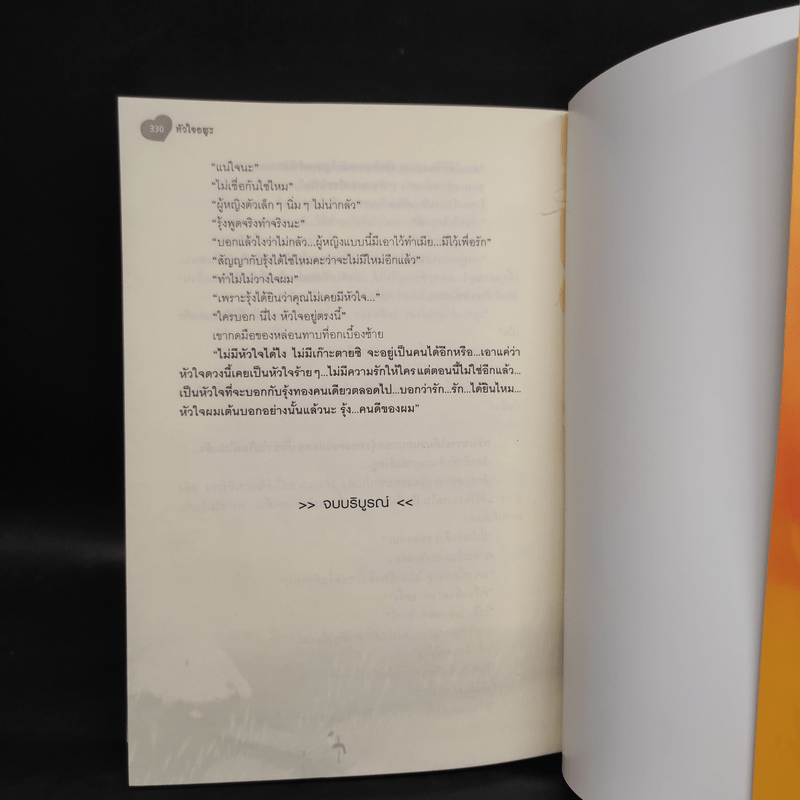 330 หัวใจอสูร
“แน่ใจนะ”
“ไม่เชื่อกันใช่ไหม”
“ผู้หญิงตัวเล็กๆ นิ่มๆ ไม่น่ากลัว”
“รุ้งพูดจริงทำจริงนะ”
“บอกแล้วไงว่าไม่กลัว...ผู้หญิงแบบนี้มีเอาไว้ทำเมีย...มีไว้เพื่อรัก”
“สัญญากับรุ้งได้ใช่ไหมคะว่าจะไม่มีใหม่อีกแล้ว”
“ทำไมไม่วางใจผม”
“เพราะรุ้งได้ยินว่าคุณไม่เคยมีหัวใจ...”
“ใครบอก นี่ไง หัวใจอยู่ตรงนี้”
เขากดมือของหล่อนทาบที่อกเบื้องซ้าย
“ไม่มีหัวใจได้ไง ไม่มีเก๊าะตายซิ จะอยู่เป็นคนได้อีกหรือ...เอาแค่ว่า
หัวใจดวงนี้เคยเป็นหัวใจร้ายๆ...ไม่มีความรักให้ใคร แต่ตอนนี้ไม่ใช่อีกแล้ว...
เป็นหัวใจที่จะบอกกับรุ้งทองคนเดียวตลอดไป...บอกว่ารัก...รัก...ได้ยินไหม...
หัวใจผมเต้นบอกอย่างนั้นแล้วนะ รุ้ง...คนดีของผม”
>> จบบริบูรณ์ <<